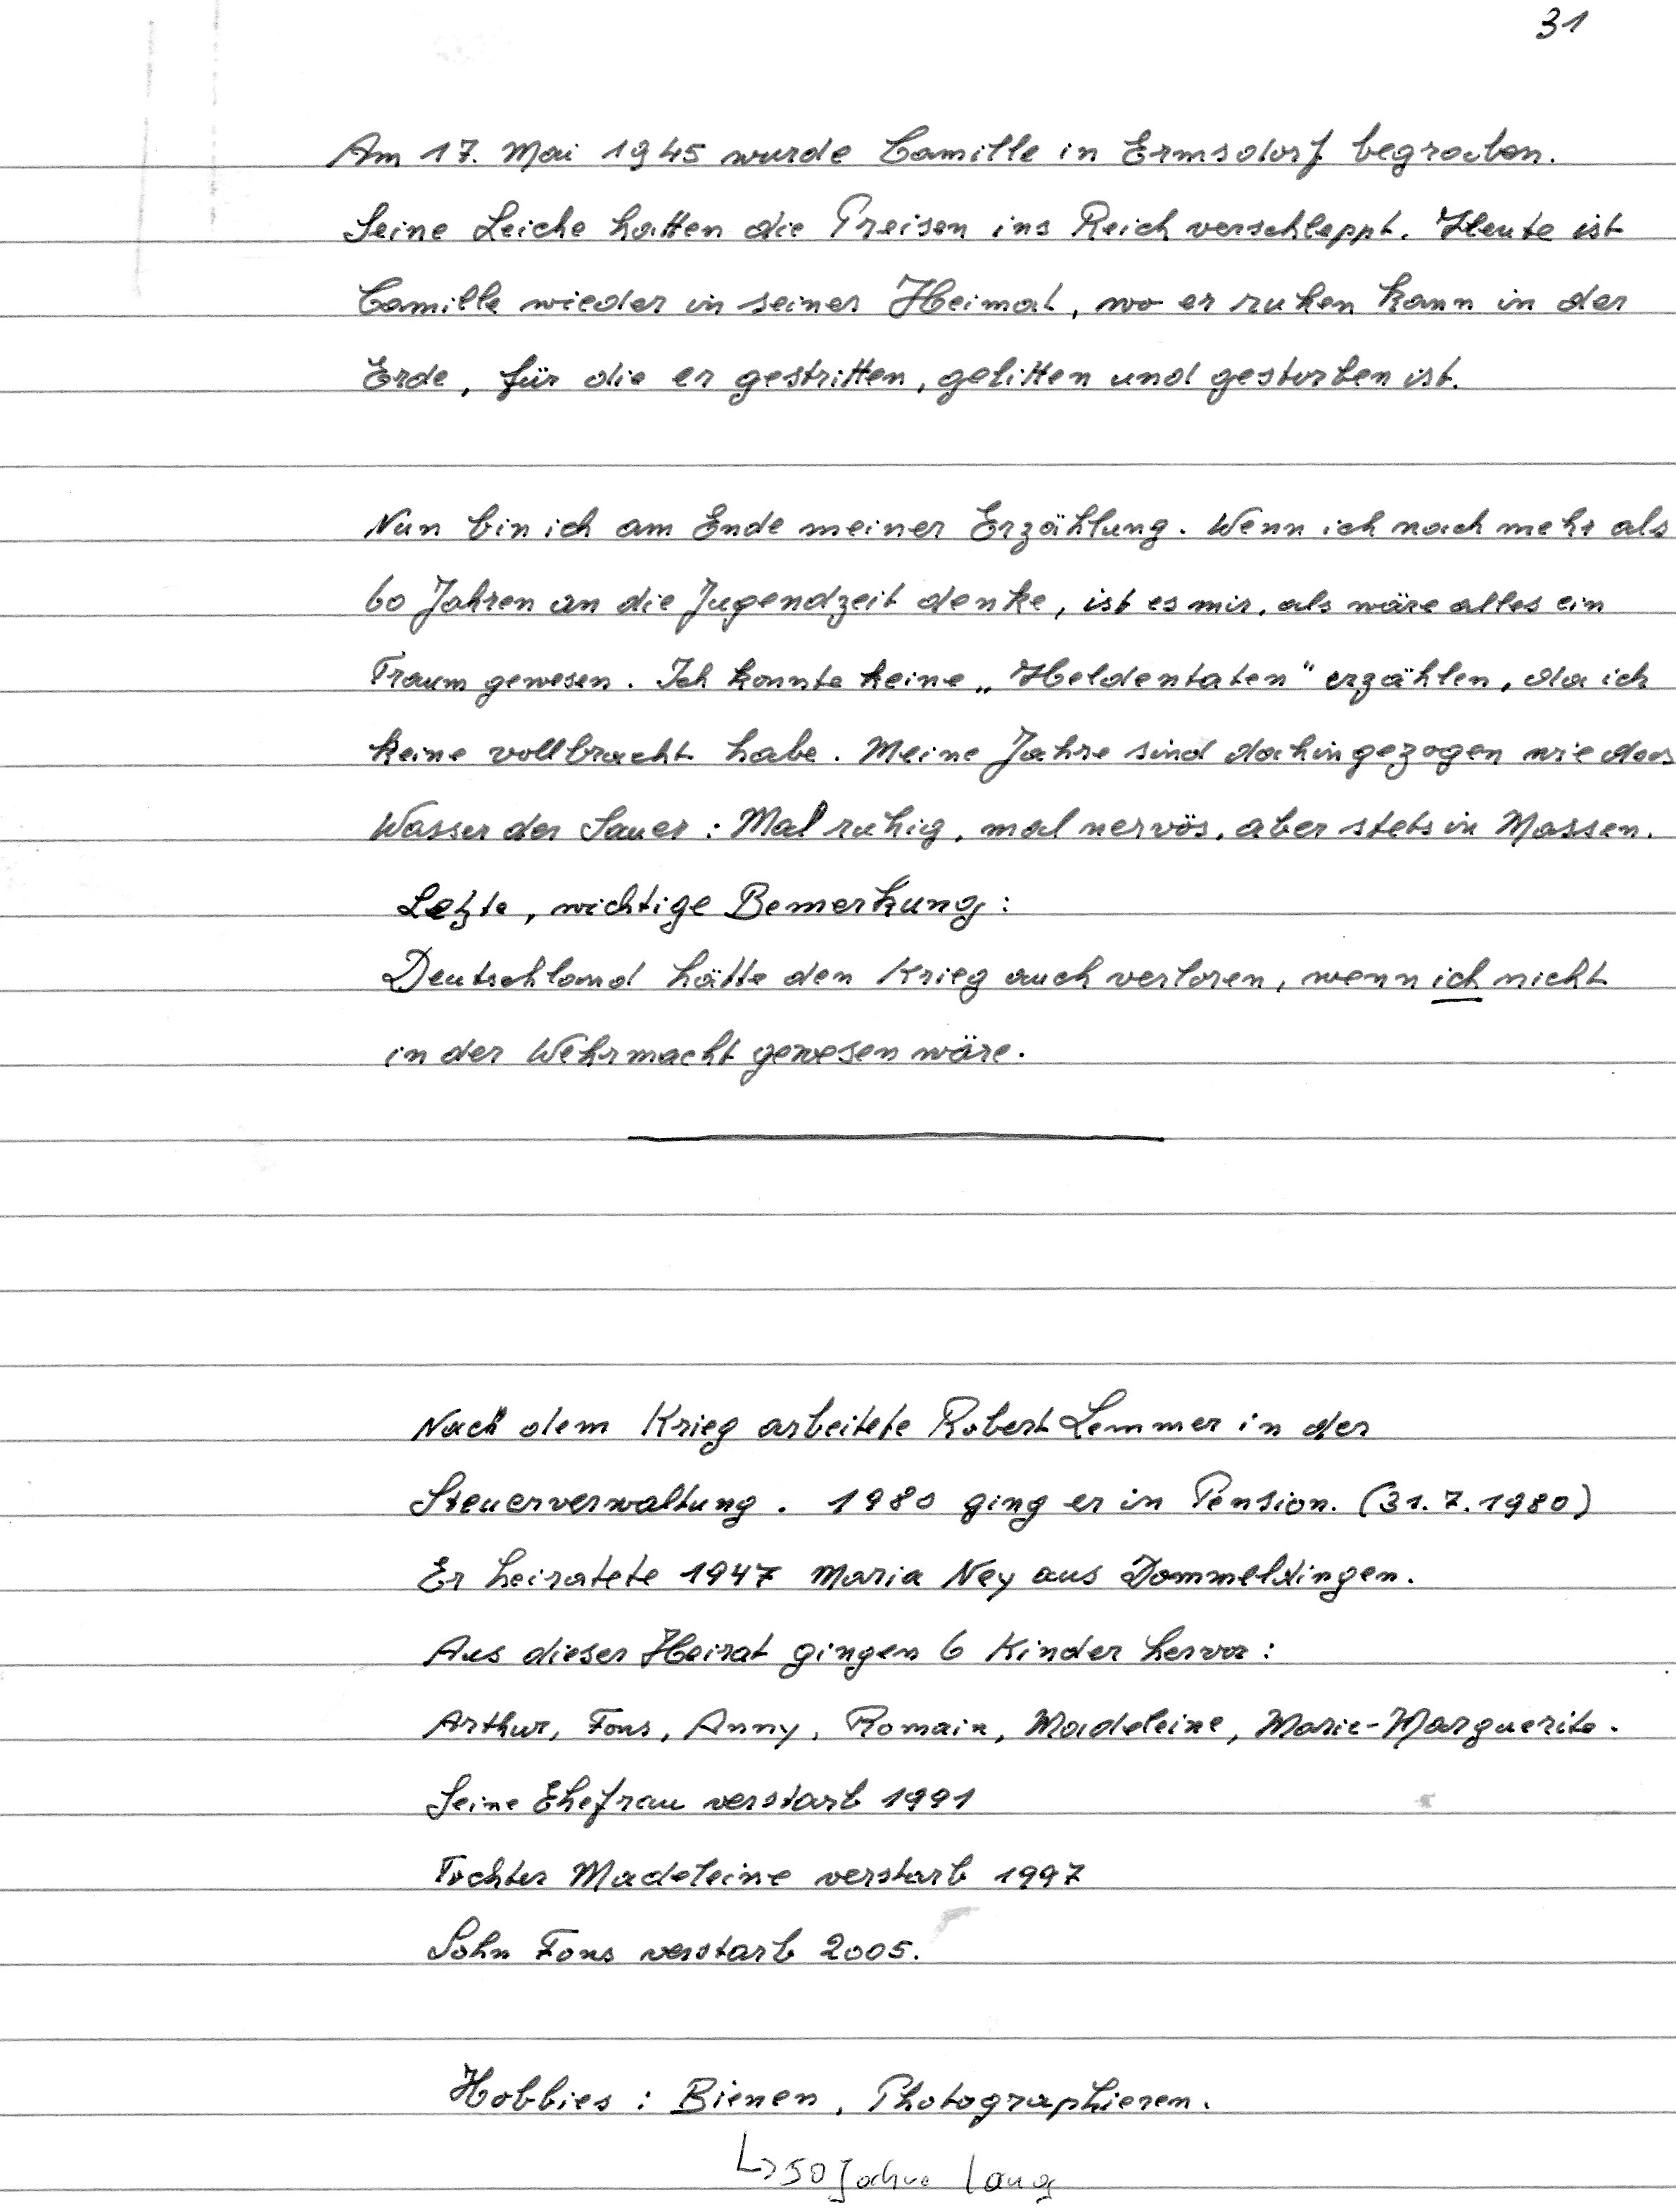 31
Am 17. Mai 1945 wurde Camille in Ermsdorf begraben.
Seine Leiche hatten die Preisen ins Reich verschleppt. Heute ist
Camille wieder in seiner Heimat, wo er ruhen kann in der
Erde, für die er gestritten, gelitten und gestorben ist.
Nun bin ich am Ende meiner Erzählung. Wenn ich nach mehr als
60 Jahren an die Jugendzeit denke, ist es mir, als wäre alles ein
Traum gewesen. Ich konnte keine „Heldentaten" erzählen, da ich
keine vollbracht habe. Meine Jahre sind dahingezogen wie das
Wasser der Sauer: Mal ruhig, mal nervös, aber stets in Massen.
Letzte, wichtige Bemerkung:
Deutschland hätte den Krieg auch verloren, wenn ich nicht
in der Wehrmacht gewesen wäre.
Nach dem Krieg arbeitete Robert Lemmer in der
Steuerverwaltung. 1980 ging er in Pension. (31.7.1980)
Er heiratete 1947 Maria Ney aus Dommeldingen.
Aus dieser Heirat gingen 6 Kinder hervor:
Arthur, Fons, Anny, Romain, Madeleine, Marie-Marguerite.
Seine Ehefrau verstarb 1991
Tochter Madeleine verstarb 1997
Sohn Fons verstarb 2005.
Hobbies: Bienen, Photographieren.
↳ 50 Jahre lang